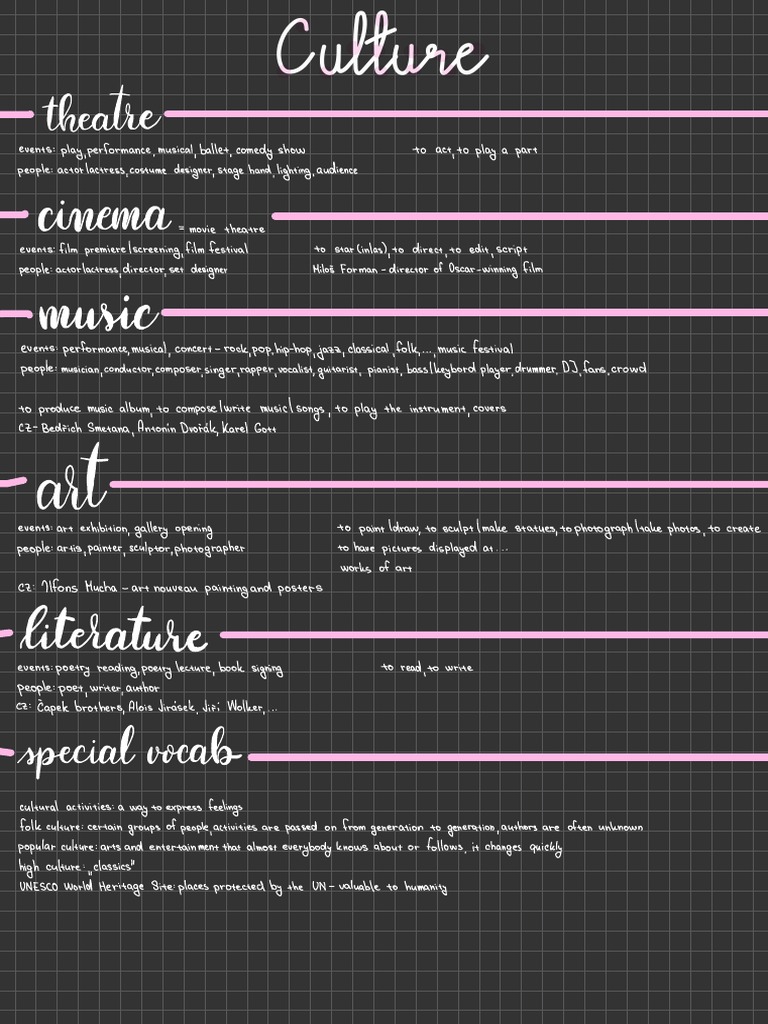 Culture
theatre
events: play, performance, musical, ballet, comedy show to act, to play a part
people: actor/actress, costume designer, stage hand, lighting, audience
cinema = movie theatre
events: film premiere/screening, film festival to star (in/as), to direct, to edit, script
people: actor/actress, director, set designer Miloš Forman - director of Oscar-winning film
music
events: performance, musical, concert - rock, pop, hip-hop, jazz, classical, folk, ..., music festival
people: musician, conductor, composer, singer, rapper, vocalist, guitarist, pianist, bass/keybord player, drummer, DJ, fans, crowd
to produce music album, to compose/write music/songs, to play the instrument, covers
CZ - Bedřich Smetana, Antonín Dvořák, Karel Gott
art
events: art exhibition, gallery opening to paint/draw, to sculpt/make statues, to photograph/take photos, to create
people: artis, painter, sculptor, photographer to have pictures displayed at...
works of art
CZ: Alfons Mucha - art nouveau painting and posters
literature
events: poetry reading, poetry lecture, book signing to read, to write
people: poet, writer, author
CZ: Čapek brothers, Alois Jirásek, Jiří Wolker, ...
special vocab
cultural activities: a way to express feelings
folk culture: certain groups of people, activities are passed on from generation to generation, authors are often unknown
popular culture: arts and entertainment that almost everybody knows about or follows, it changes quickly
high culture: „classics"
UNESCO World Heritage Site: places protected by the UN - valuable to humanity